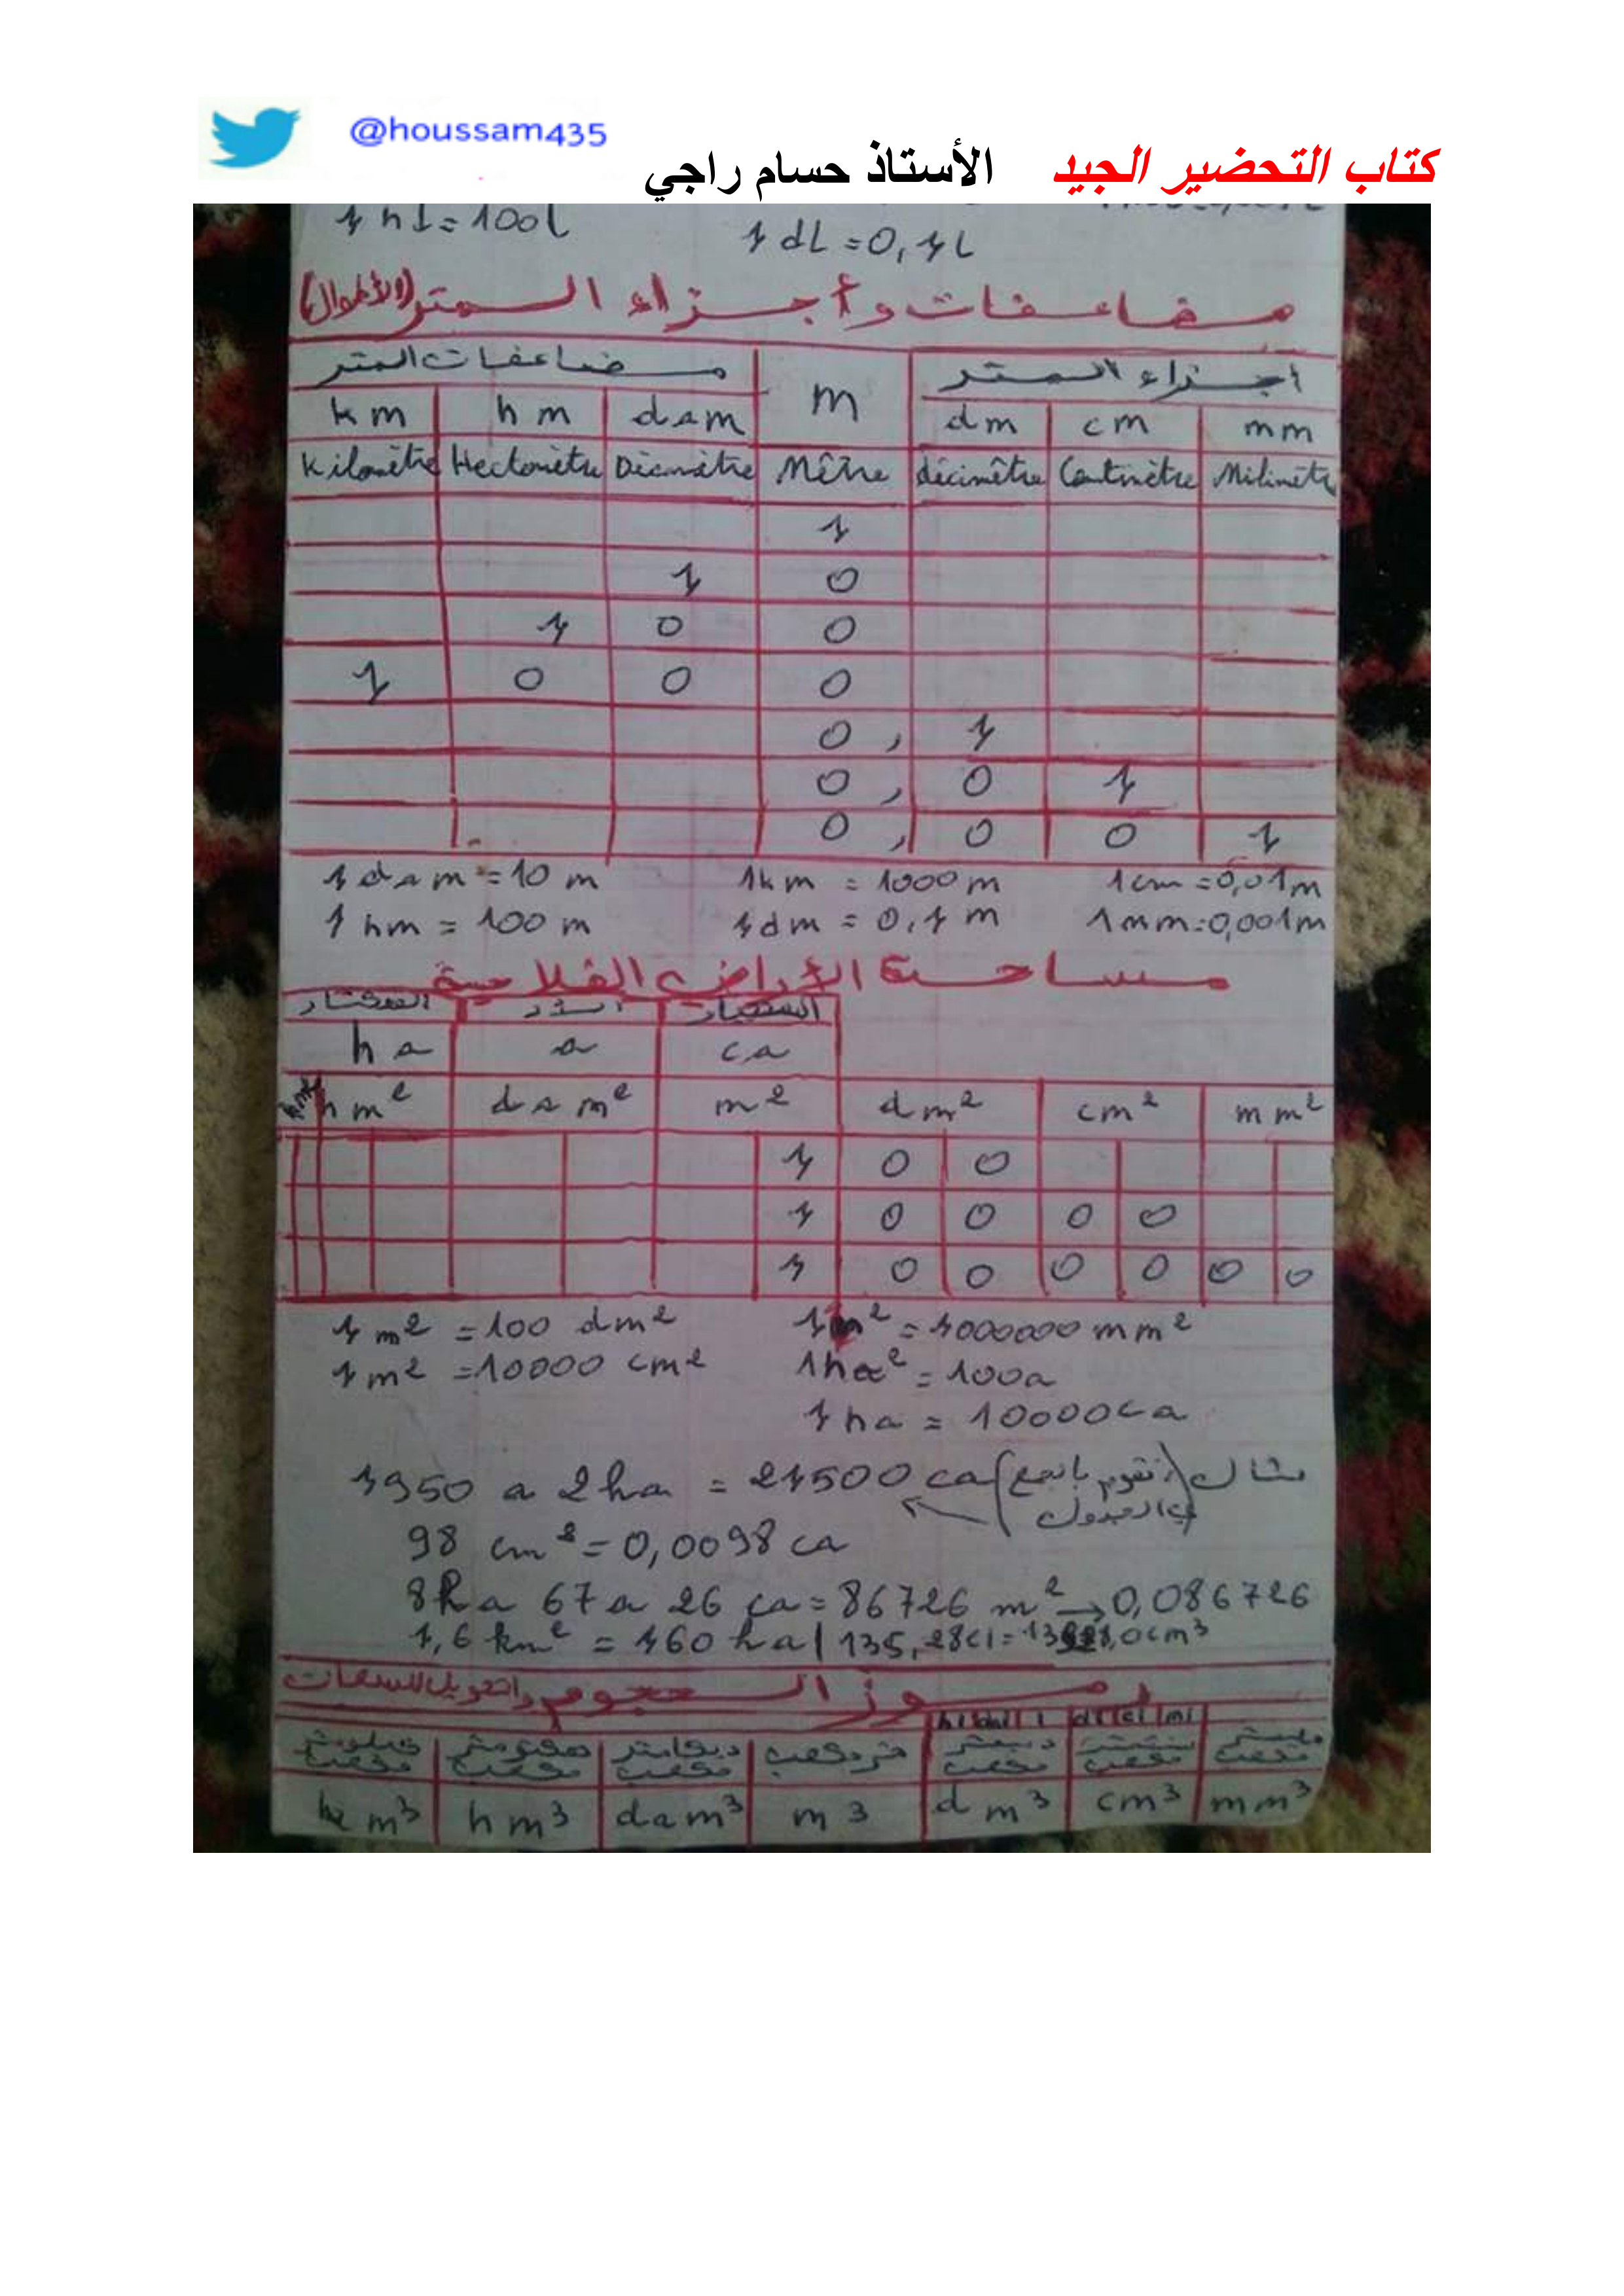 @houssam435
كتاب التحضير الجيد الأستاذ حسام راجي
1 hl = 100l
1 dL = 0,1L
مضاعفات وأجزاء المتر (الأطوال)
مضاعفات المتر m أجزاء المتر
km hm dam dm cm mm
Kilomètre Hectomètre Décamètre Mêtre décimêtre Centimètre Milimètre
1
1 0
1 0 0
1 0 0 0
0 , 1
0 , 0 1
0 , 0 0 1
1 dam = 10 m 1km = 1000 m 1cm = 0,01m
1 hm = 100 m 1dm = 0,1 m 1mm = 0,001m
مساحة الأراضي الفلاحية
الهكتار الآر السنتيار
ha a ca
km² hm² dam² m² dm² cm² mm²
1 0 0
1 0 0 0 0
1 0 0 0 0 0 0
1 m² = 100 dm² 1m² = 1000000 mm²
1 m² = 10000 cm² 1ha² = 100a
1 ha = 10000ca
1950 a 2ha = 21500 ca (نقوم بالجمع في الجدول) مثال
98 cm² = 0,0098 ca
8ha 67a 26 ca = 86726 m² → 0,086726
1,6 km² = 160 ha | 135,28cl =
رموز الحجوم وتحويل للسعات
hl dal l dl cl ml
كيلومتر مكعب هكتومتر مكعب ديكامتر مكعب متر مكعب ديسمتر مكعب سنتمتر مكعب مليمتر مكعب
km³ hm³ dam³ m³ dm³ cm³ mm³